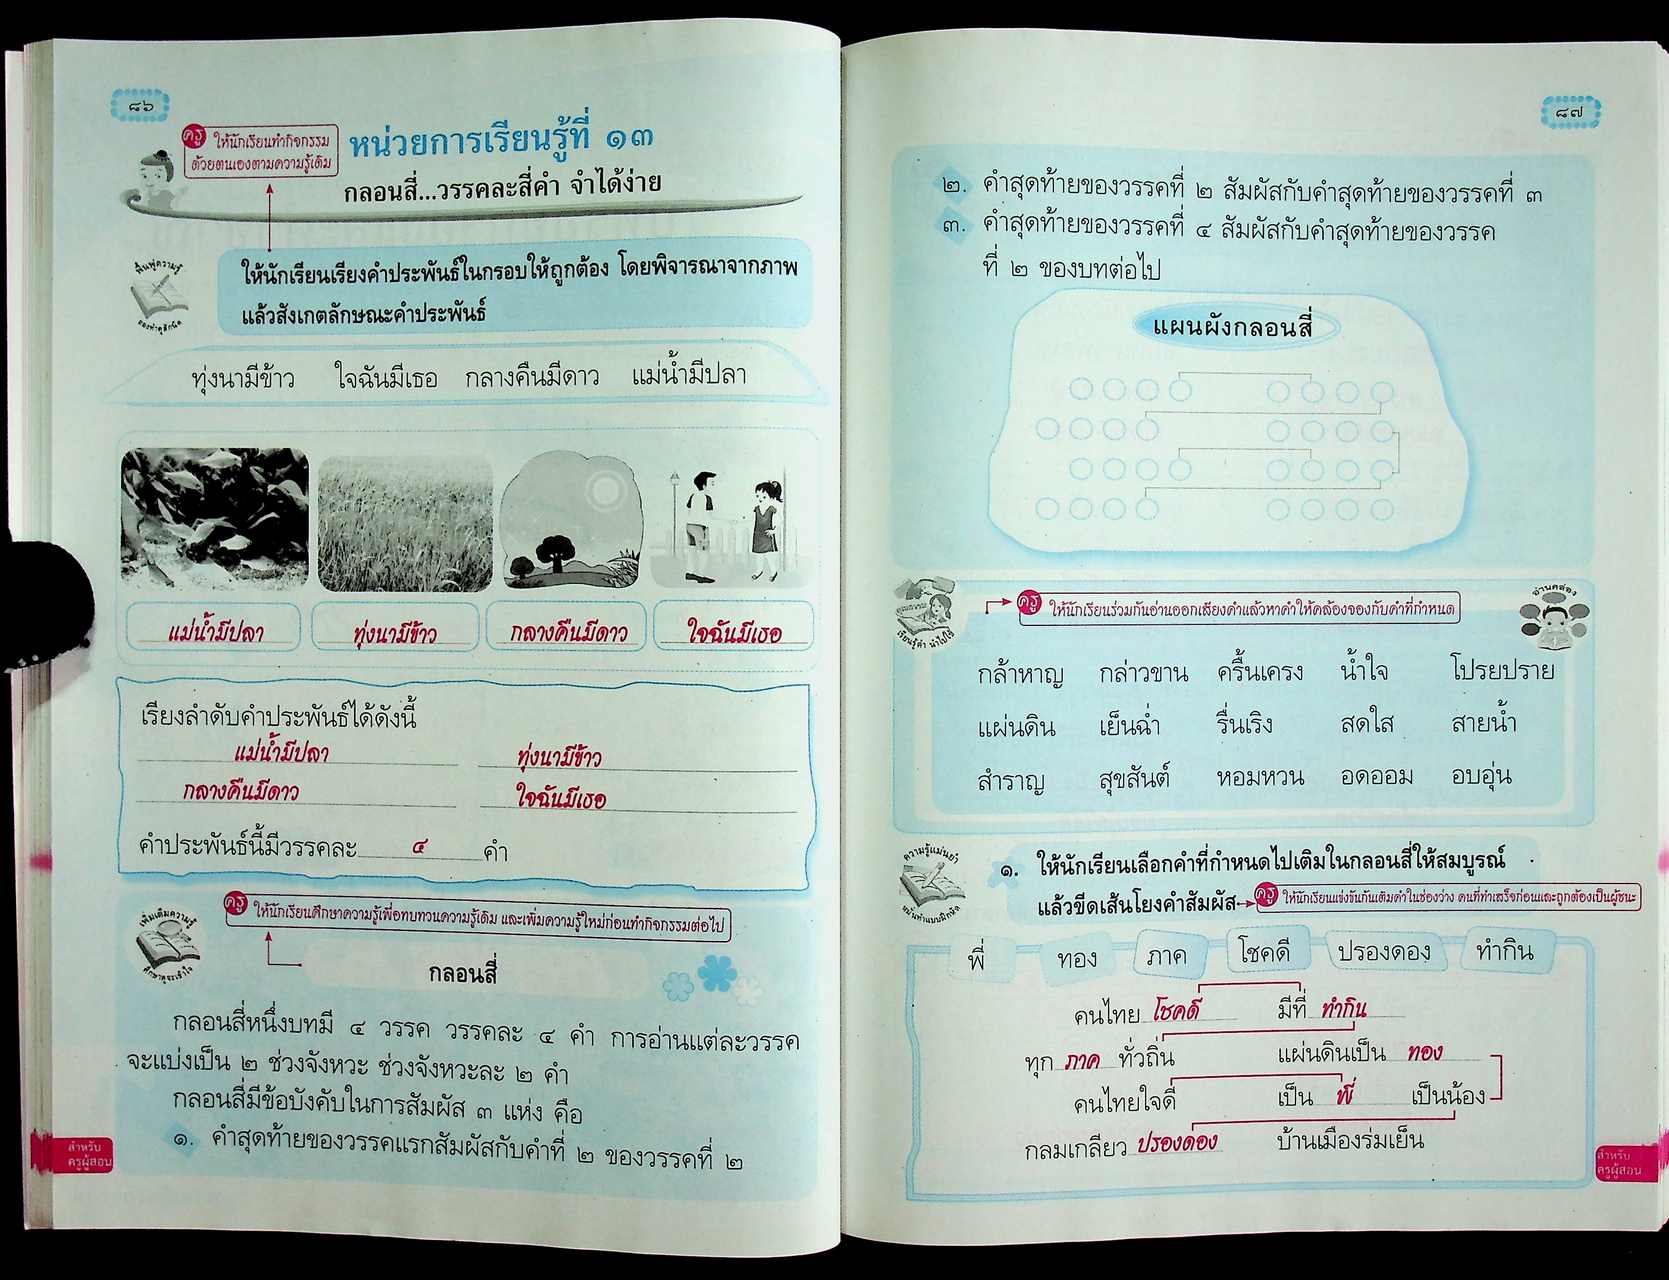 ๘๖
ครู ให้นักเรียนทำกิจกรรม
ด้วยตนเองตามความรู้เดิม
หน่วยการเรียนรู้ที่ ๑๓
กลอนสี่...วรรคละสี่คำ จำได้ง่าย
ฟื้นฟูความรู้
ให้นักเรียนเรียงคำประพันธ์ในกรอบให้ถูกต้อง โดยพิจารณาจากภาพ
แล้วสังเกตลักษณะคำประพันธ์
ทุ่งนามีข้าว ใจฉันมีเธอ กลางคืนมีดาว แม่น้ำมีปลา
แม่น้ำมีปลา ทุ่งนามีข้าว กลางคืนมีดาว ใจฉันมีเธอ
เรียงลำดับคำประพันธ์ได้ดังนี้
แม่น้ำมีปลา ทุ่งนามีข้าว
กลางคืนมีดาว ใจฉันมีเธอ
คำประพันธ์นี้มีวรรคละ ๔ คำ
ครู ให้นักเรียนศึกษาความรู้เพื่อทบทวนความรู้เดิม และเพิ่มความรู้ใหม่ก่อนทำกิจกรรมต่อไป
เพิ่มเติมความรู้
ศึกษาดูจะเข้าใจ
กลอนสี่
กลอนสี่หนึ่งบทมี ๔ วรรค วรรคละ ๔ คำ การอ่านแต่ละวรรค
จะแบ่งเป็น ๒ ช่วงจังหวะ ช่วงจังหวะละ ๒ คำ
กลอนสี่มีข้อบังคับในการสัมผัส ๓ แห่ง คือ
๑. คำสุดท้ายของวรรคแรกสัมผัสกับคำที่ ๒ ของวรรคที่ ๒
สำหรับ
ครูผู้สอน
๘๗
๒. คำสุดท้ายของวรรคที่ ๒ สัมผัสกับคำสุดท้ายของวรรคที่ ๓
๓. คำสุดท้ายของวรรคที่ ๔ สัมผัสกับคำสุดท้ายของวรรค
ที่ ๒ ของบทต่อไป
แผนผังกลอนสี่
ครู ให้นักเรียนร่วมกันอ่านออกเสียงคำแล้วหาคำให้คล้องจองกับคำที่กำหนด
อ่านคล่อง
เรียนรู้คำ นำไปใช้
กล้าหาญ กล่าวขาน ครื้นเครง น้ำใจ โปรยปราย
แผ่นดิน เย็นฉ่ำ รื่นเริง สดใส สายน้ำ
สำราญ สุขสันต์ หอมหวน อดออม อบอุ่น
ความรู้แม่นยำ
หมั่นทำแบบฝึกหัด
๑. ให้นักเรียนเลือกคำที่กำหนดไปเติมในกลอนสี่ให้สมบูรณ์
แล้วขีดเส้นโยงคำสัมผัส ครู ให้นักเรียนแข่งขันกันเติมคำในช่องว่าง คนที่ทำเสร็จก่อนและถูกต้องเป็นผู้ชนะ
พี่ ทอง ภาค โชคดี ปรองดอง ทำกิน
คนไทย โชคดี มีที่ ทำกิน
ทุก ภาค ทั่วถิ่น แผ่นดินเป็น ทอง
คนไทยใจดี เป็น พี่ เป็นน้อง
กลมเกลียว ปรองดอง บ้านเมืองร่มเย็น
สำหรับ
ครูผู้สอน